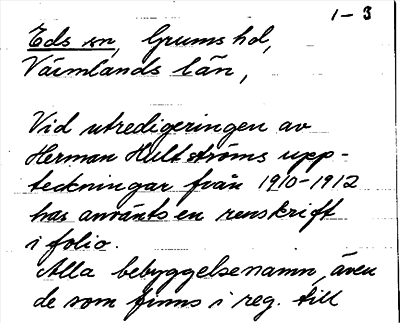 1-3
Eds sn, Grums hd,
Värmlands län,
Vid utredigeringen av
Herman Hultströms upp-
teckningar från 1910-1912
har använts en renskrift
i folio.
Alla bebyggelsenamn, även
de som finns i reg. till